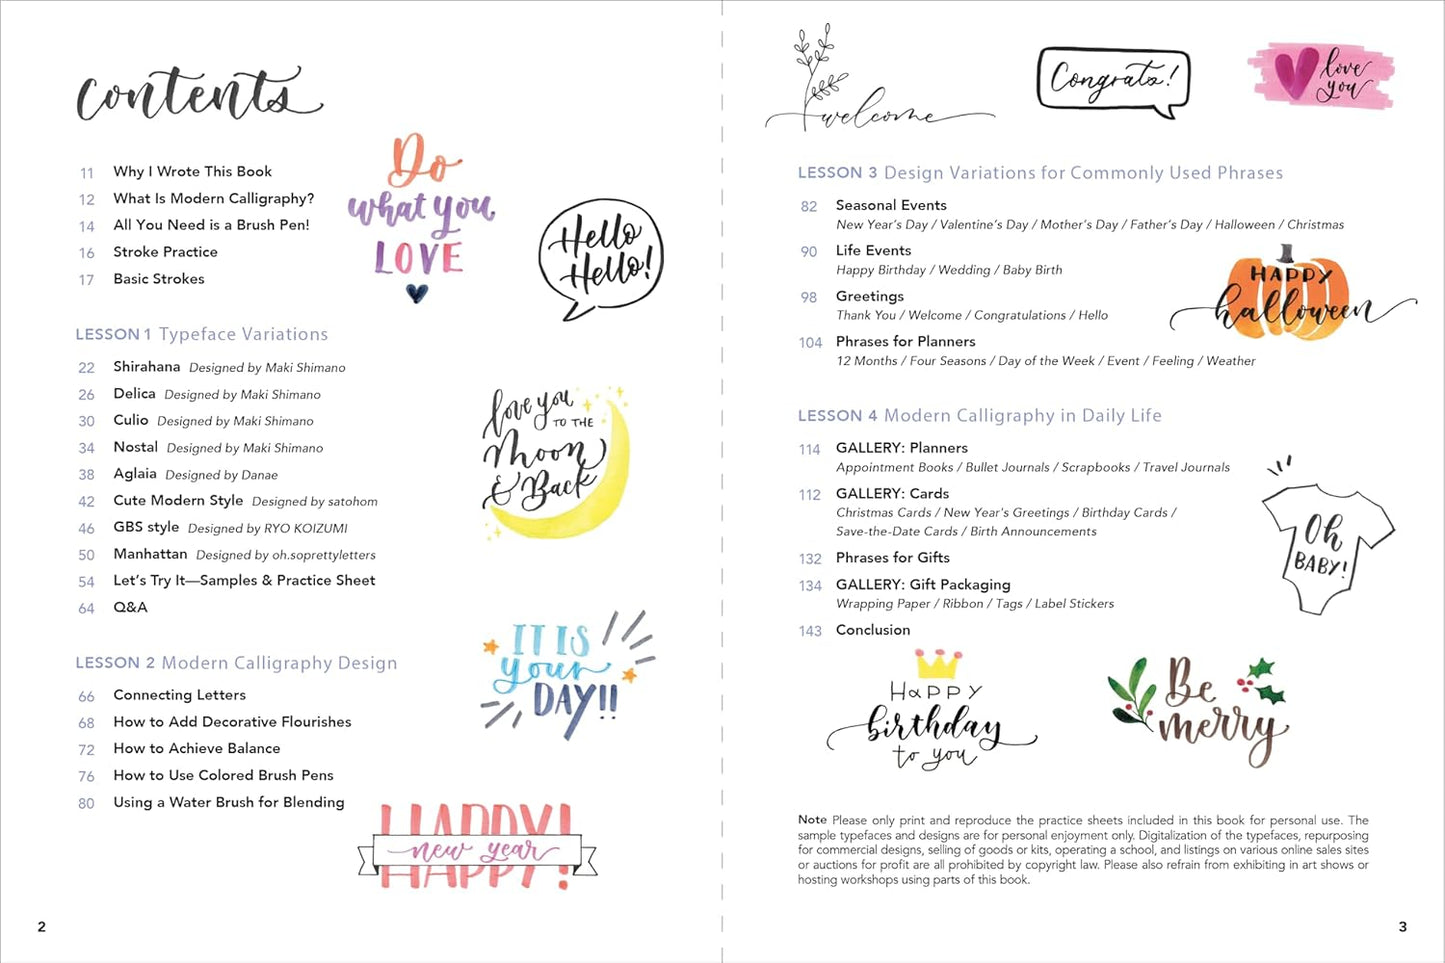 contents
11 Why I Wrote This Book
12 What Is Modern Calligraphy?
14 All You Need is a Brush Pen!
16 Stroke Practice
17 Basic Strokes
Do
what you
LOVE
Hello
Hello!
LESSON 1 Typeface Variations
22 Shirahana Designed by Maki Shimano
26 Delica Designed by Maki Shimano
30 Culio Designed by Maki Shimano
34 Nostal Designed by Maki Shimano
38 Aglaia Designed by Danae
42 Cute Modern Style Designed by satohom
46 GBS style Designed by RYO KOIZUMI
50 Manhattan Designed by oh.soprettyletters
54 Let's Try It—Samples & Practice Sheet
64 Q&A
love you
TO THE
Moon
& Back
LESSON 2 Modern Calligraphy Design
66 Connecting Letters
68 How to Add Decorative Flourishes
72 How to Achieve Balance
76 How to Use Colored Brush Pens
80 Using a Water Brush for Blending
IT IS
your
DAY!!
HAPPY!
new year
HAPPY!
2
welcome
Congrats!
love
you
LESSON 3 Design Variations for Commonly Used Phrases
82 Seasonal Events
New Year's Day / Valentine's Day / Mother's Day / Father's Day / Halloween / Christmas
90 Life Events
Happy Birthday / Wedding / Baby Birth
98 Greetings
Thank You / Welcome / Congratulations / Hello
104 Phrases for Planners
12 Months / Four Seasons / Day of the Week / Event / Feeling / Weather
HAPPY
halloween
LESSON 4 Modern Calligraphy in Daily Life
114 GALLERY: Planners
Appointment Books / Bullet Journals / Scrapbooks / Travel Journals
112 GALLERY: Cards
Christmas Cards / New Year's Greetings / Birthday Cards /
Save-the-Date Cards / Birth Announcements
132 Phrases for Gifts
134 GALLERY: Gift Packaging
Wrapping Paper / Ribbon / Tags / Label Stickers
143 Conclusion
Oh
BABY!
HAPPY
birthday
to you
Be
merry
Note Please only print and reproduce the practice sheets included in this book for personal use. The
sample typefaces and designs are for personal enjoyment only. Digitalization of the typefaces, repurposing
for commercial designs, selling of goods or kits, operating a school, and listings on various online sales sites
or auctions for profit are all prohibited by copyright law. Please also refrain from exhibiting in art shows or
hosting workshops using parts of this book.
3